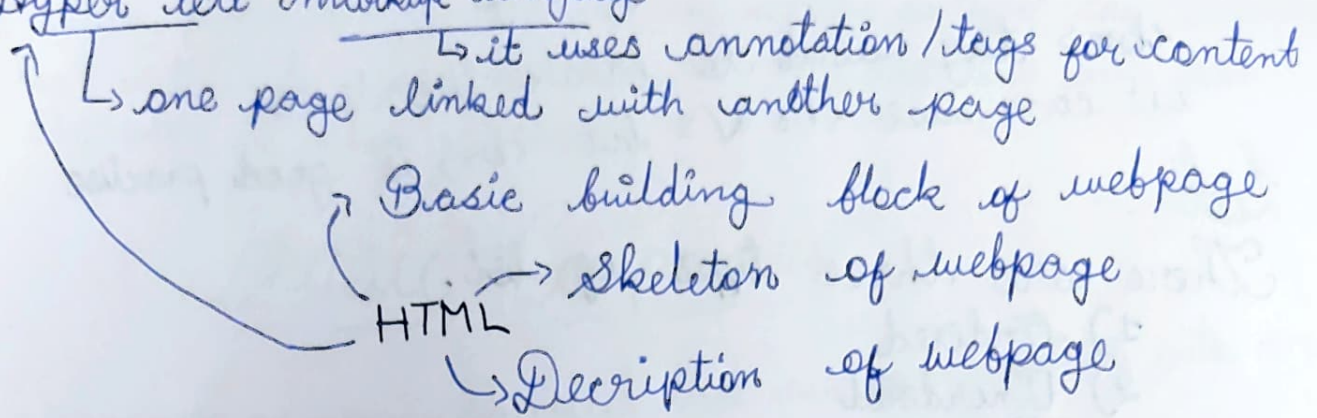 Hyper text markup language
↳ it uses annotation/tags for content
↳ one page linked with another page
Basic building block of webpage
→ Skeleton of webpage
HTML
↳ Decription of webpage